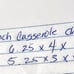 ach Casserole d
6.25 x 4 x
5.25 x 3 x